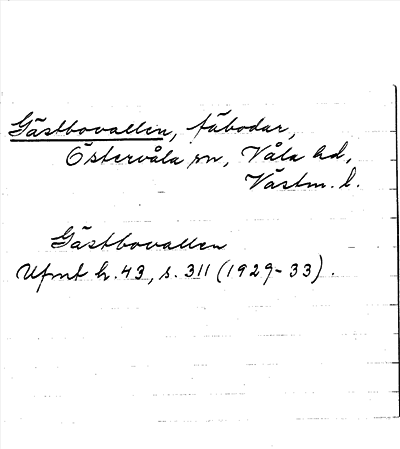 Gästbovallen, fäbodar,
Östervåla sn, Våla hd,
Västm. l.
Gästbovallen
Ufmt h. 43, s. 311 (1929-33).